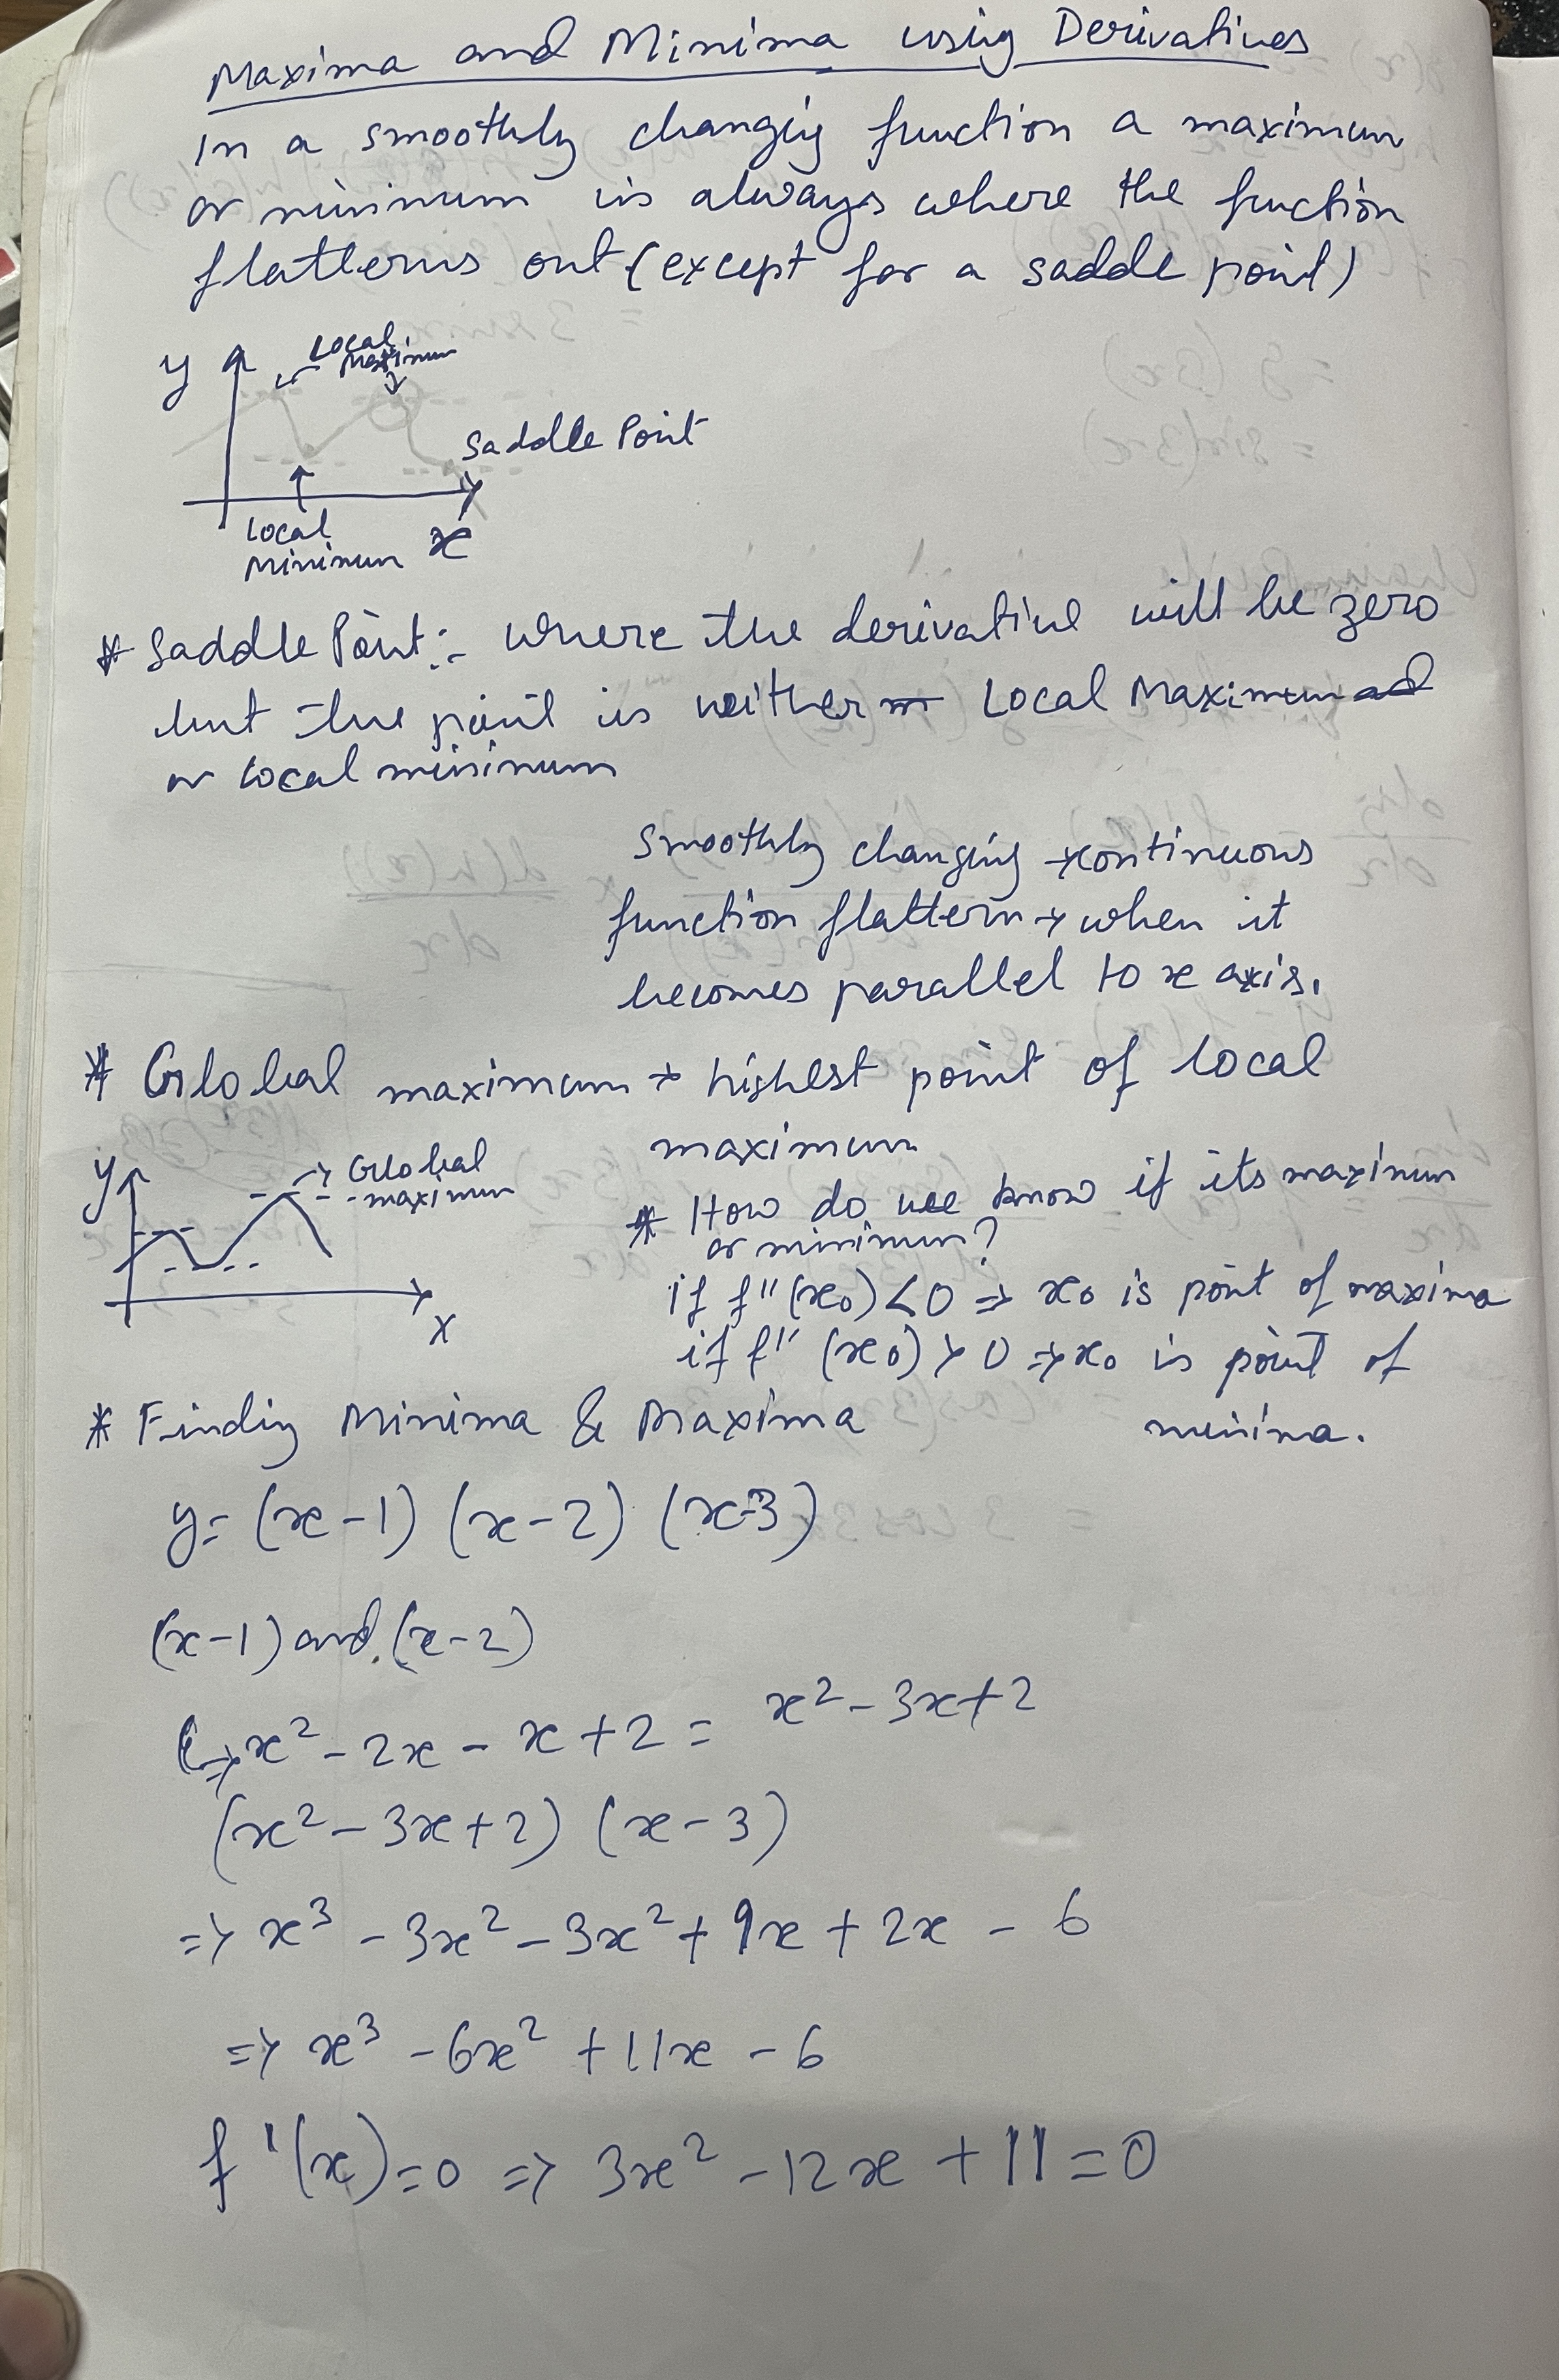 Maxima and Minima using Derivatives
In a smoothly changing function a maximum
or minimum is always where the function
flatterns out (except for a saddle point)
Local
Maximum
y
Saddle Point
Local
Minimum
x
* Saddle Point:- where the derivative will be zero
but the point is neither Local Maximum
or local minimum
Smoothly changing → continuous
function flattern → when it
becomes parallel to x axis.
* Global maximum → highest point of local
maximum
y
Global
maximum
x
* How do we know if its maximum
or minimum?
if f''(x₀) < 0 ⇒ x₀ is point of maxima
if f''(x₀) > 0 ⇒ x₀ is point of
minima.
* Finding Minima & Maxima
y = (x-1) (x-2) (x-3)
(x-1) and (x-2)
⇒ x² - 2x - x + 2 = x² - 3x + 2
(x² - 3x + 2) (x - 3)
⇒ x³ - 3x² - 3x² + 9x + 2x - 6
⇒ x³ - 6x² + 11x - 6
f'(x) = 0 ⇒ 3x² - 12x + 11 = 0